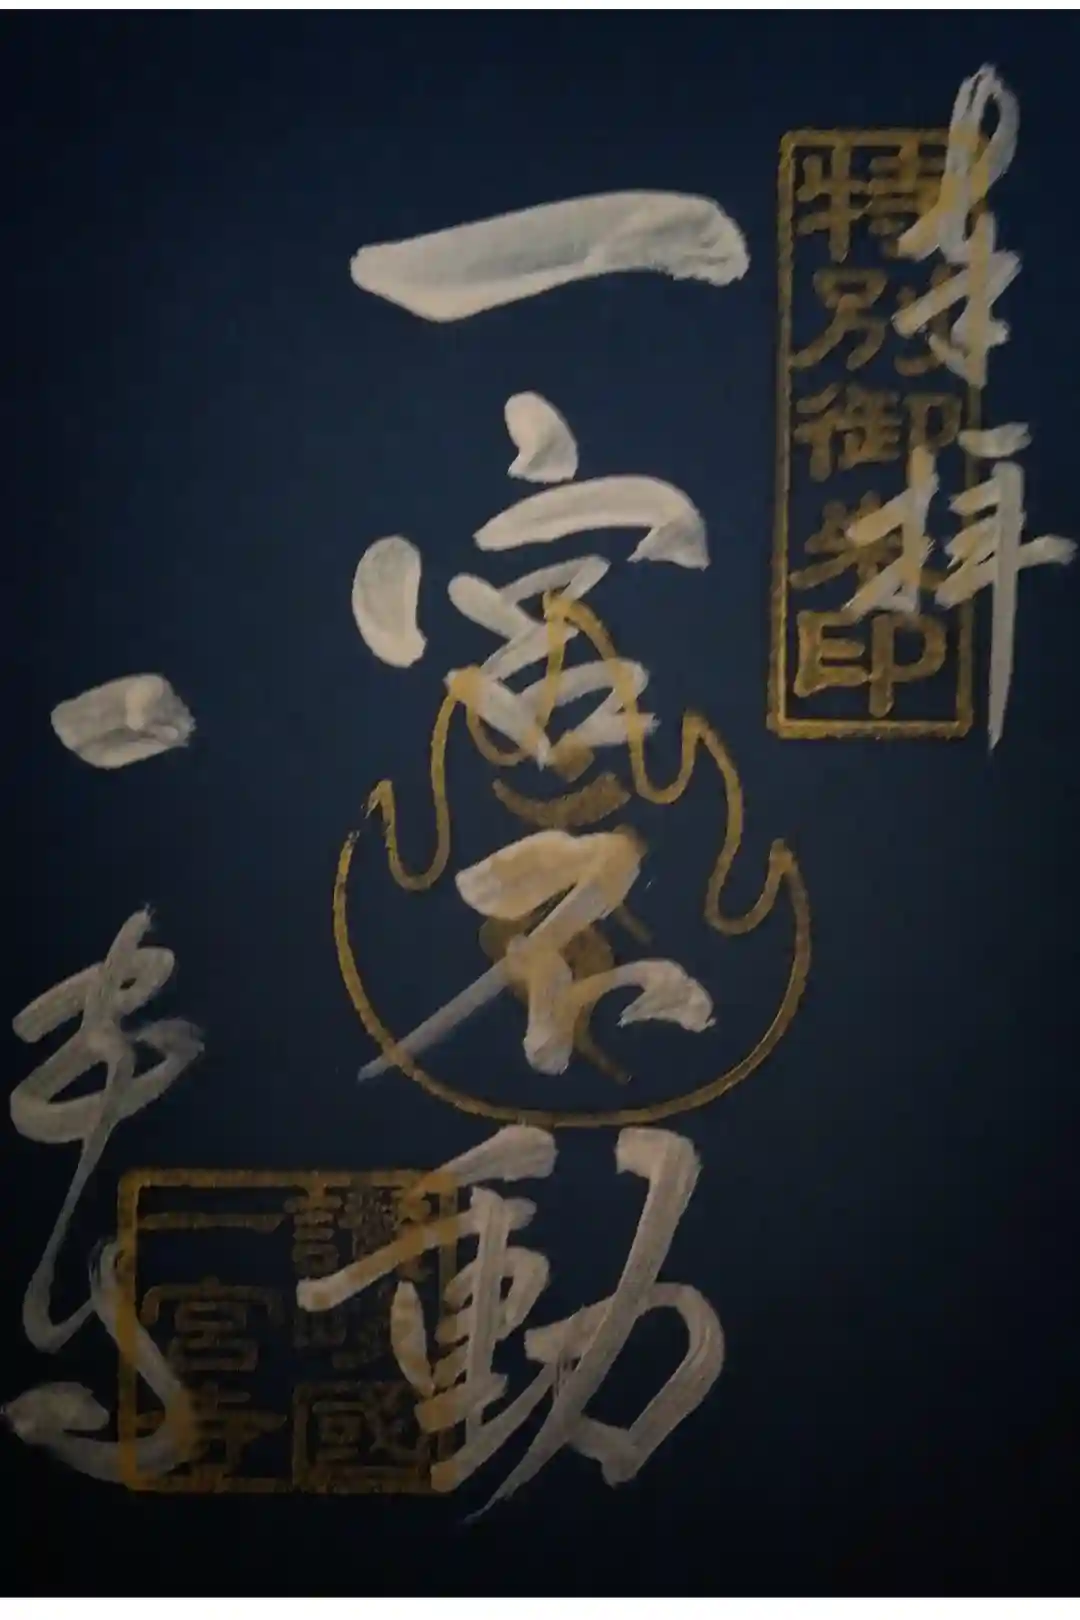 奉拝
特別御朱印
一宮不動
一宮寺
讃岐國
一宮寺